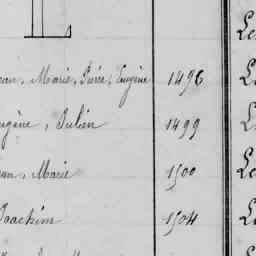 L
Le
ean, Marie, Pierre, Eugène 1496
ugène, Julien 1499
ean, Marie 1500
Le
Joachim 1504